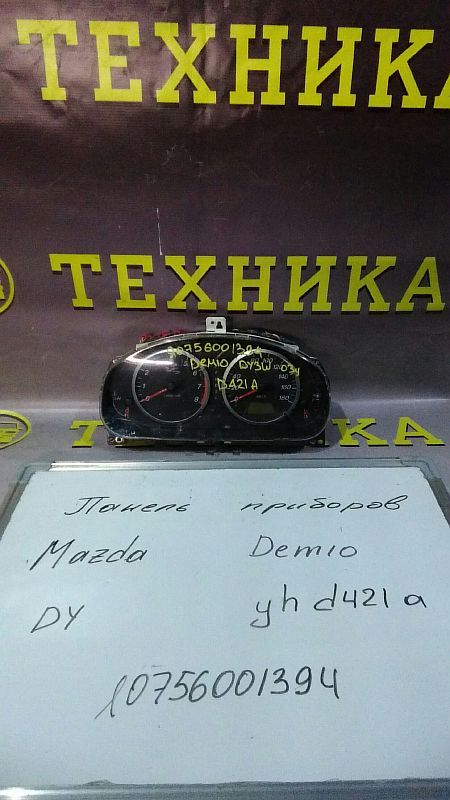 ТЕХНИКА
ТЕХНИКА
10756001394
Demio DY3W 034
D421A
КА
Панель приборов
Mazda Demio
DY yh d421 a
10756001394